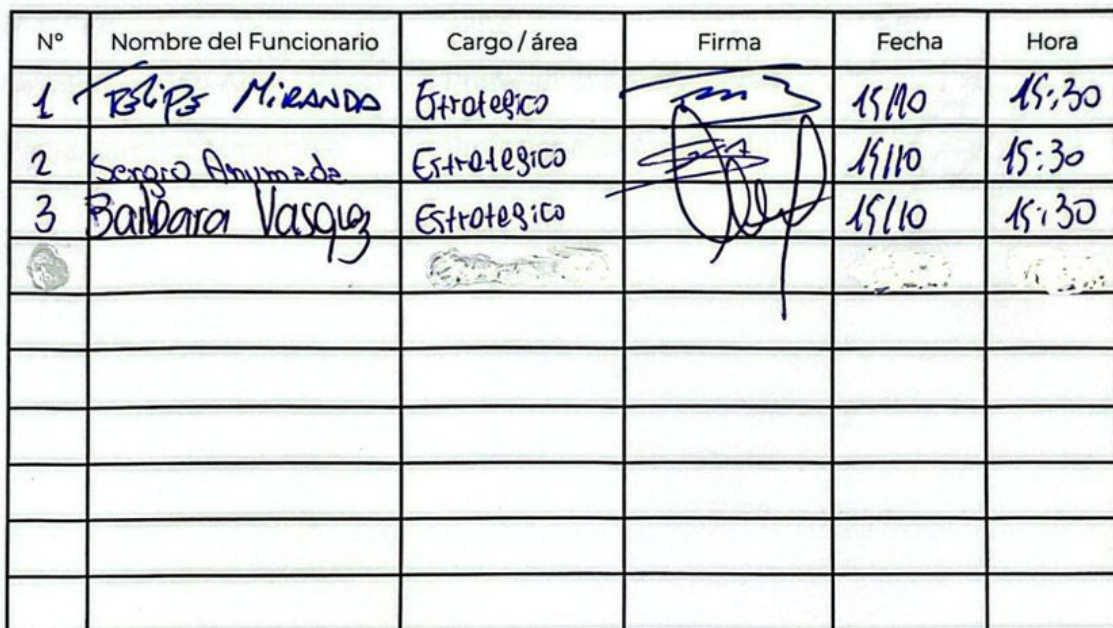 N° Nombre del Funcionario Cargo / área Firma Fecha Hora
1 FELIPE MIRANDA Estrategico 15/10 15:30
2 Sergio Estrategico 15/10 15:30
3 Barbara Vasquez Estrategico 15/10 15:30